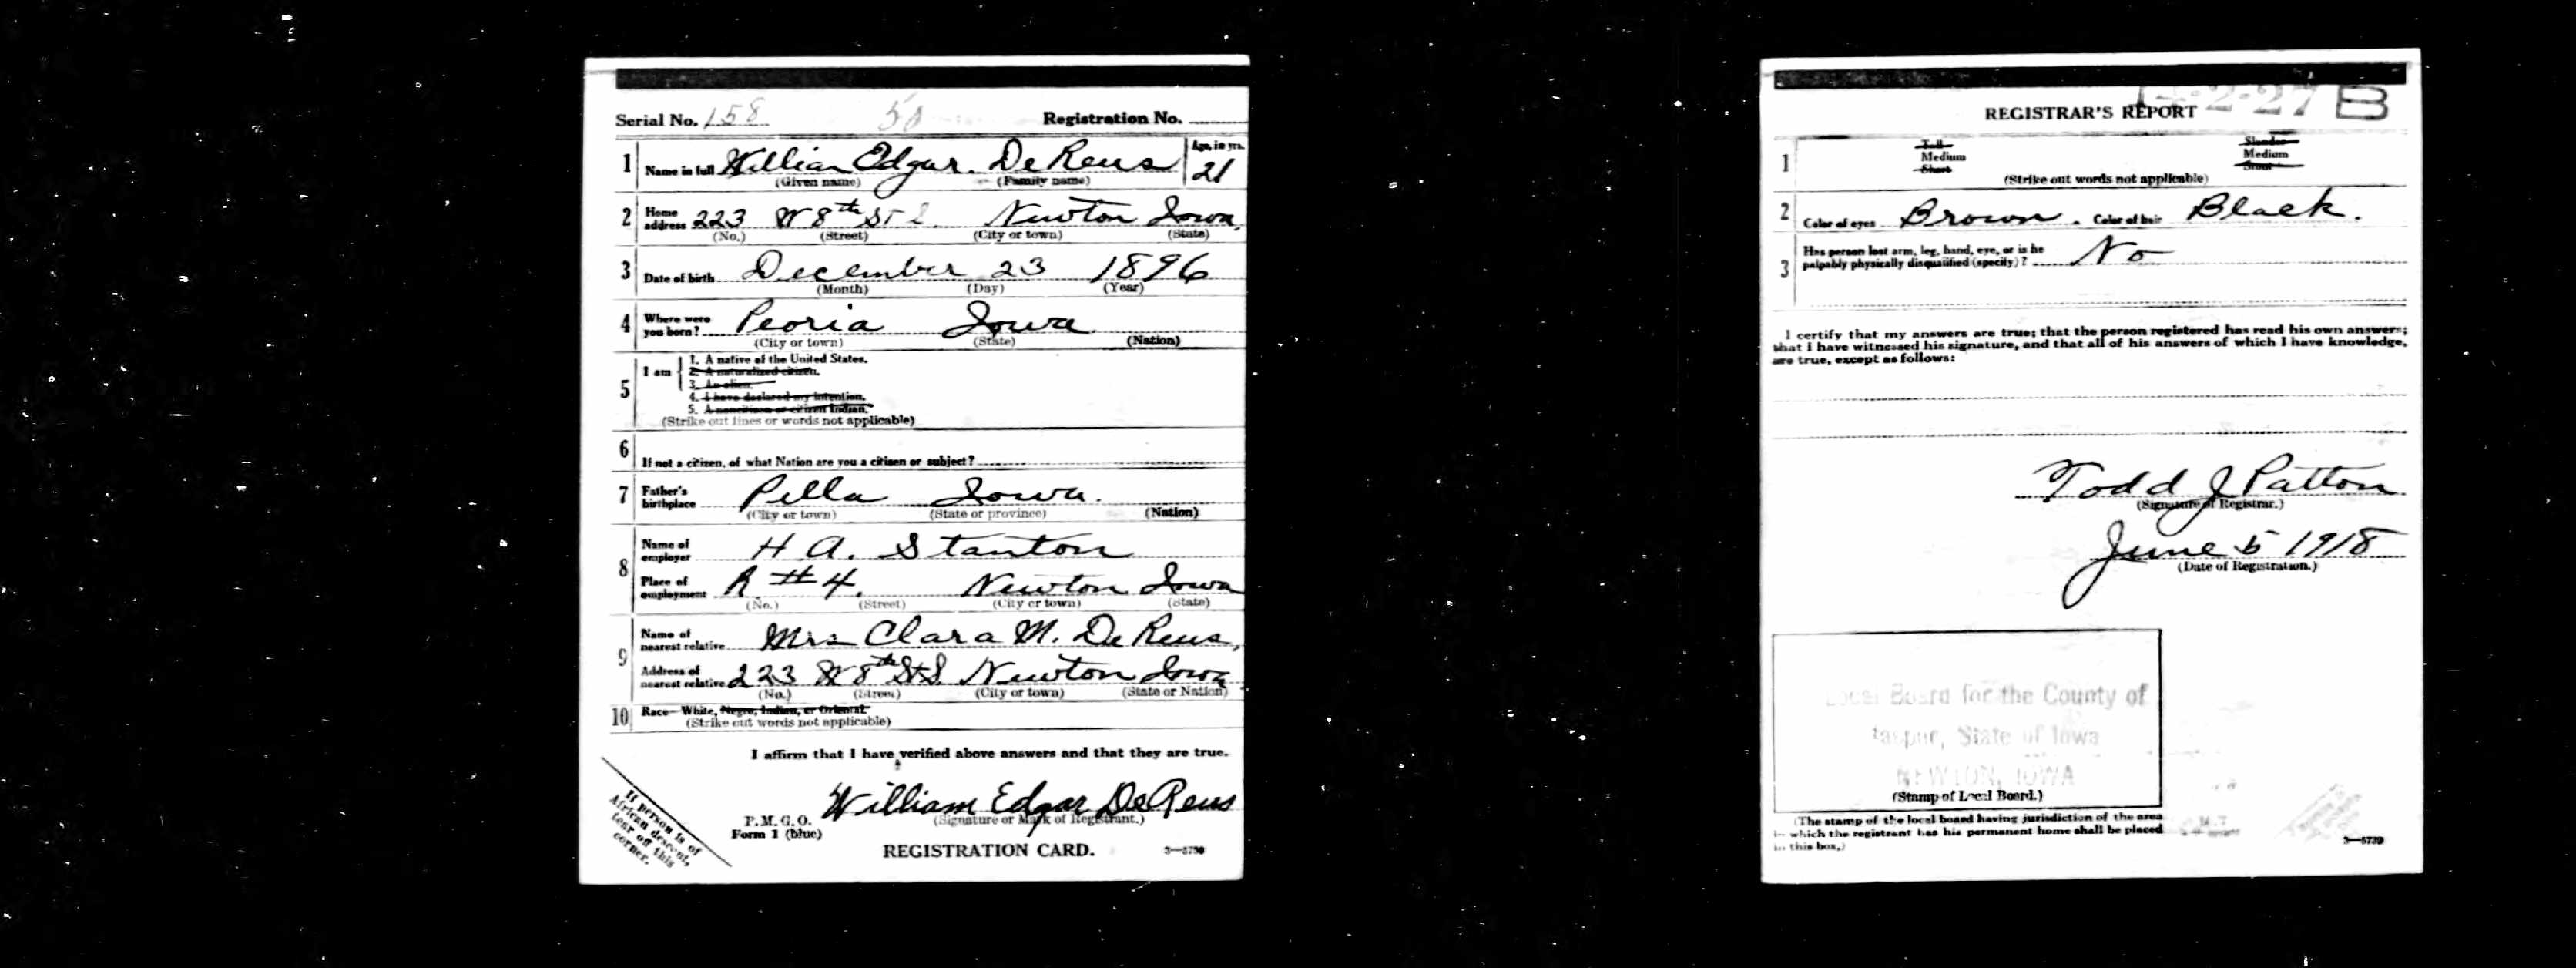 Serial No. 158 50 Registration No.
1 Name in full William Edgar. De Reus Age, in yrs. 21
(Given name) (Family name)
2 Home address 223 W 8th St S. Newton Iowa.
(No.) (Street) (City or town) (State)
3 Date of birth December 23 1896
(Month) (Day) (Year)
4 Where were you born? Peoria Iowa
(City or town) (State) (Nation)
5 I am
1. A native of the United States.
2. A naturalized citizen.
3. An alien.
4. I have declared my intention.
5. A noncitizen or citizen Indian.
(Strike out lines or words not applicable)
6 If not a citizen, of what Nation are you a citizen or subject?
7 Father's birthplace Pella Iowa.
(City or town) (State or province) (Nation)
8 Name of employer H A. Stanton
Place of employment R #4. Newton Iowa
(No.) (Street) (City or town) (State)
9 Name of nearest relative Mrs Clara M. De Reus,
Address of nearest relative 223 W 8th St S Newton Iowa
(No.) (Street) (City or town) (State or Nation)
10 Race—White, Negro, Indian, or Oriental.
(Strike out words not applicable)
I affirm that I have verified above answers and that they are true.
William Edgar De Reus
(Signature or Mark of Registrant.)
P. M. G. O.
Form 1 (blue)
REGISTRATION CARD.
3—5739
If person is of
African descent,
tear off this
corner.
14-2-27 B
REGISTRAR'S REPORT
1 Tall Slender
Medium Medium
Short Stout
(Strike out words not applicable)
2 Color of eyes Brown. Color of hair Black.
3 Has person lost arm, leg, hand, eye, or is he
palpably physically disqualified (specify)? No
I certify that my answers are true; that the person registered has read his own answers;
that I have witnessed his signature, and that all of his answers of which I have knowledge,
are true, except as follows:
Todd J Patton
(Signature of Registrar.)
June 5 1918
(Date of Registration.)
Local Board for the County of
Jasper, State of Iowa
NEWTON, IOWA
(Stamp of Local Board.)
(The stamp of the local board having jurisdiction of the area
in which the registrant has his permanent home shall be placed
in this box.)
3—5739